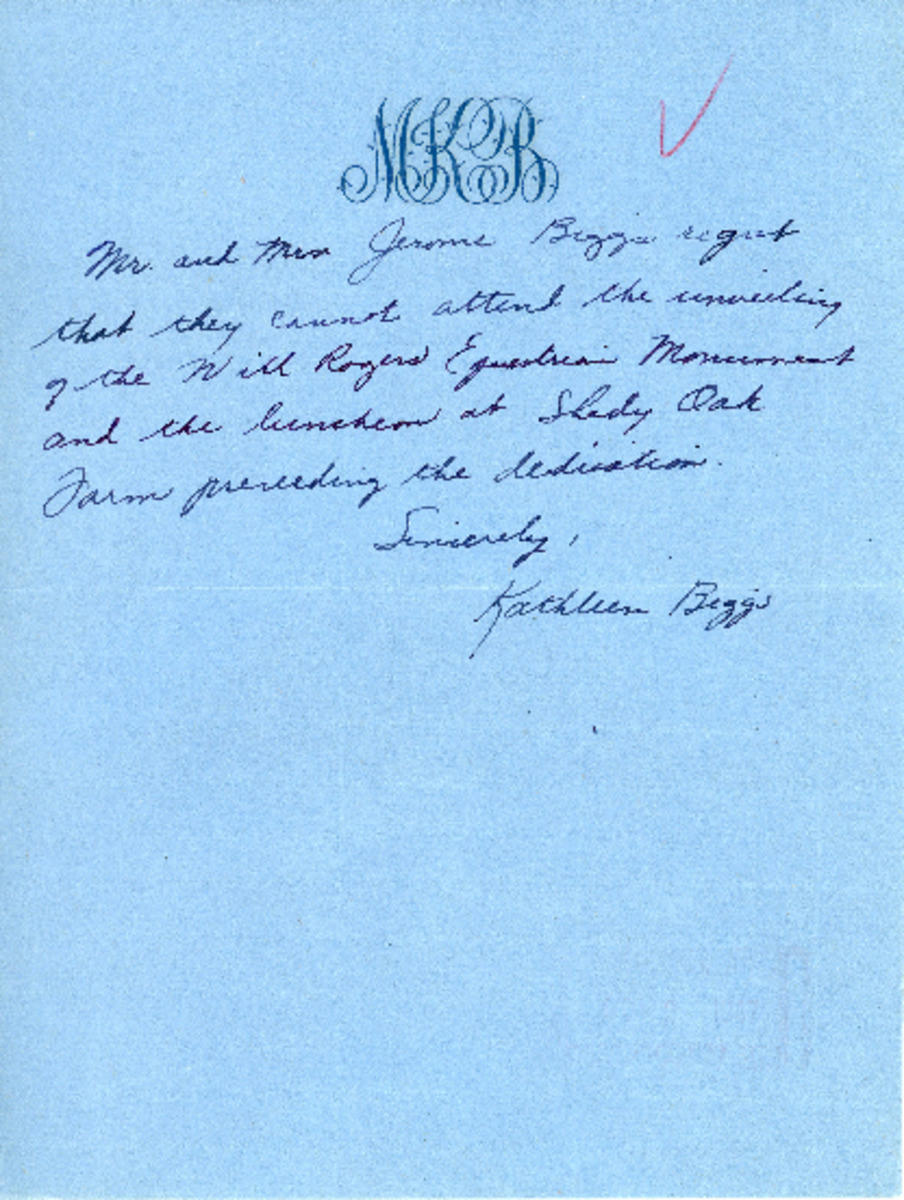 MKB
Mr. and Mrs Jerome Biggs regret
that they cannot attend the unveiling
of the Will Rogers Equestrian Monument
and the luncheon at Shady Oak
Farm preceeding the dedication.
Sincerely,
Kathleen Biggs